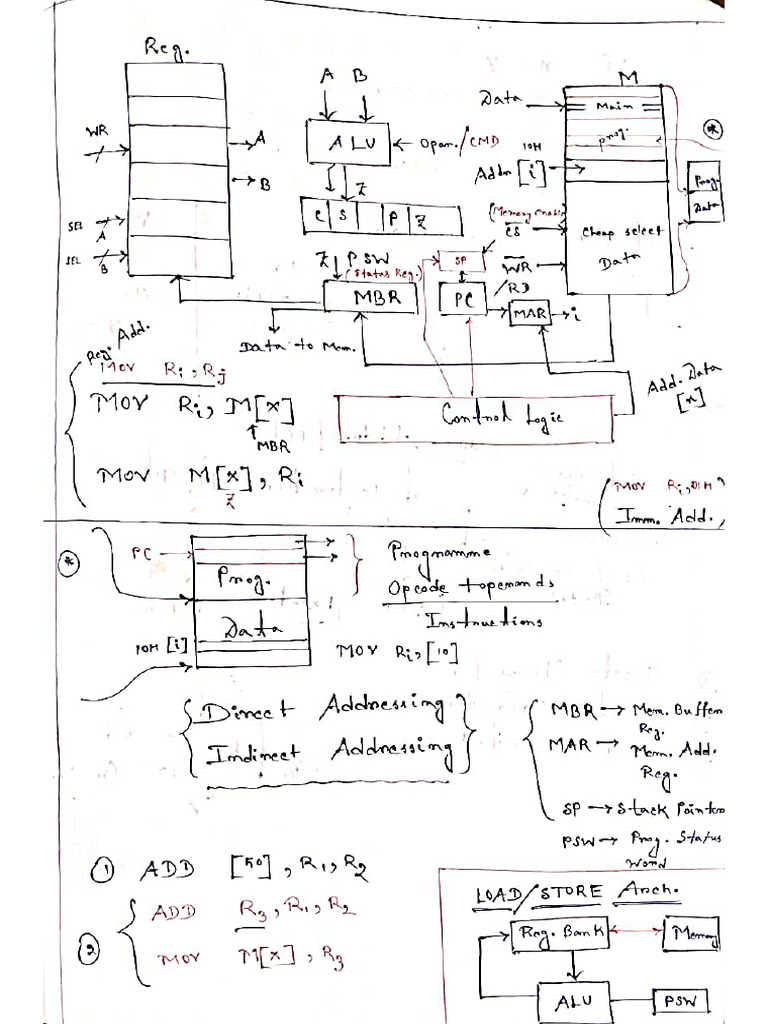 Reg.
M
A B
Data
Main
WR
A
ALU
Opern./CMD
10H
Addr [i]
prog.
*
B
Z
Prog.
Data
C S P Z
(Memory enable)
CS
SEL A
SEL B
Cheap select
Data
Z PSW
(Status Reg.)
SP
WR
/RD
MBR
PC
MAR
i
Data to Mem.
Reg. Add.
MOV Ri, Rj
Add. Data
[x]
MOV Ri, M[x]
MBR
Control Logic
MOV M[x], Ri
Z
MOV Ri, 01H
Imm. Add.,
*
PC
Programme
Prog.
Opcode + operands
Instructions
Data
10H [i]
MOV Ri, [10]
Direct Addressing
Indirect Addressing
MBR → Mem. Buffer
Reg.
MAR → Mem. Add.
Reg.
SP → Stack Pointer
PSW → Prog. Status
Word
1 ADD [50], R1, R2
2 ADD R3, R1, R2
MOV M[x], R3
LOAD/STORE Arch.
Reg. Bank
Memory
ALU
PSW